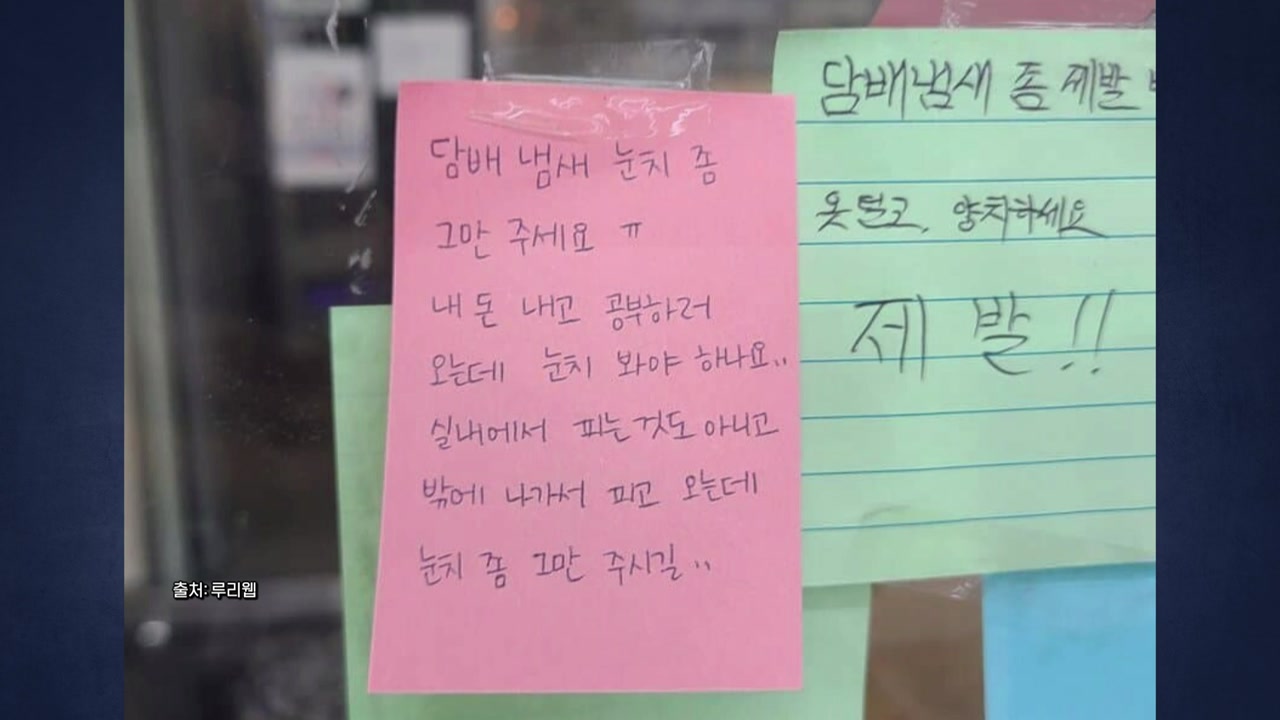 담배 냄새 눈치 좀
그만 주세요 ㅠ
내 돈 내고 공부하러
오는데 눈치 봐야 하나요..
실내에서 피는것도 아니고
밖에 나가서 피고 오는데
눈치 좀 그만 주시길..
담배냄새 좀 제발
옷털고, 양치하세요
제발!!
출처: 루리웹